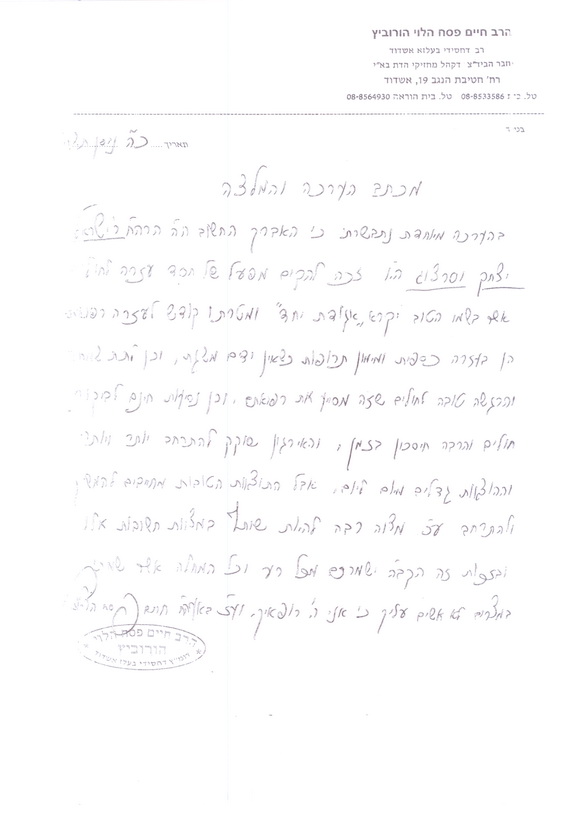 הרב חיים פסח הלוי הורוביץ
רב דחסידי בעלזא אשדוד
חבר הביד"צ דקהל מחזיקי הדת בא"י
רח' חטיבת הנגב 19, אשדוד
טל. בית הוראה 08-8564930 08-8533586 טל.
בס"ד
תאריך כ"ה ניסן
מכתב הערכה והמלצה
בהערכה מיוחדת נתבשרתי כי האברך החשוב הרה"ח ר' ישראל
יצחק הי"ו זכה להקים מפעל של חסד עזרה
אשר בשמו הטוב יקרא "אגודת יחד" ומטרתו קודש לעזרה
הן בעזרה כספית ומימון תרופות כשאין ידם משגת, וכן לתת
והרגשה טובה לחולים שזה מסייע את רפואתם. וכן נסיעות חינם
חולים והרבה חיסכון בזמן, והאירגון שוקק להתרחב יותר ויותר
וההוצאות גדלים מיום ליום. אבל התוצאות הטובות מחייבים
ולהתרחב ע"כ מצוה רבה להיות שותף במצוות חשובות אלו
ובזכות זה הקב"ה ישמרכם מכל רע וכל המחלה אשר שמתי
במצרים לא אשים עליך כי אני ה' רופאיך.
הרב חיים פסח הלוי
הורוביץ
דחסידי בעלזא אשדוד